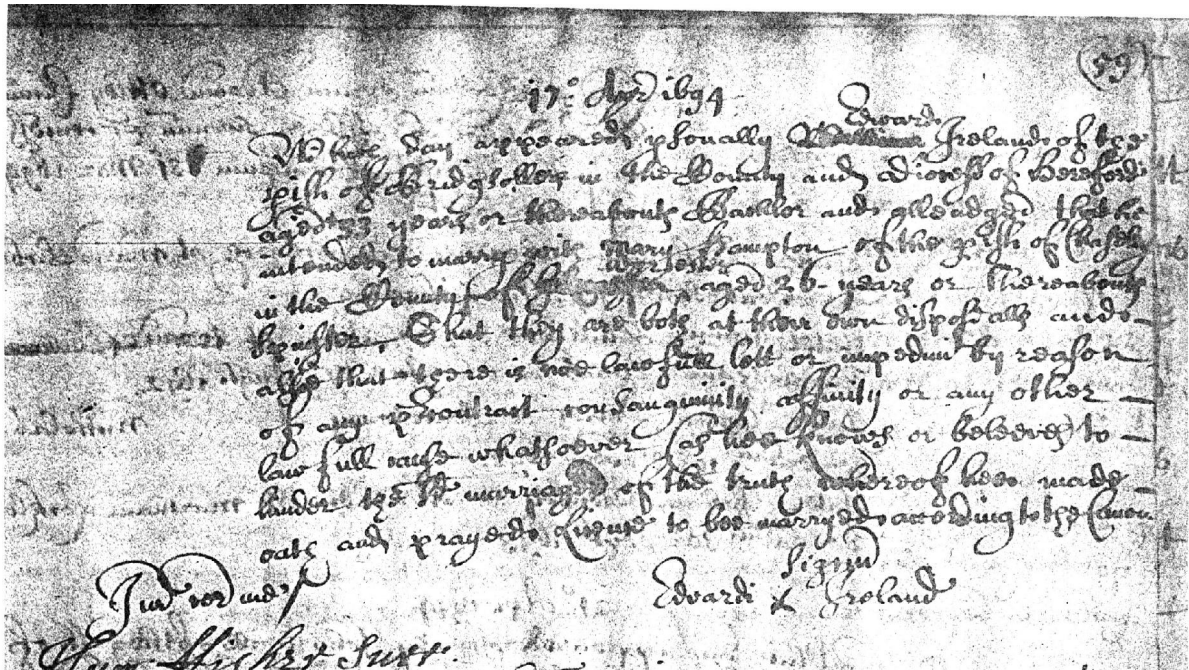 (59)
17.o Apr 1694
Edward
Which day appeared psonally Ireland of the
pish of Bridgsollers in the County and Diocess of Hereford
aged 33 years or thereabouts Bachlor and alleadged that he
intendeth to marry with Mary Hampton of the pish of
Worcester
in the County of aged 26 years or thereabouts
Spinster, That they are both at their own disposall and
alsoe that there is noe lawfull lett or impedimt by reason
of any pcontract consanguinity affinity or any other
lawfull cause whatsoever (as hee knoweth or beleeveth) to
hinder the sd marriage of the truth whereof hee made
oath and prayed Licence to bee marryed according to the Canon
Signum
Jur cor me
Edvardi x Ireland
Hickes Surr.